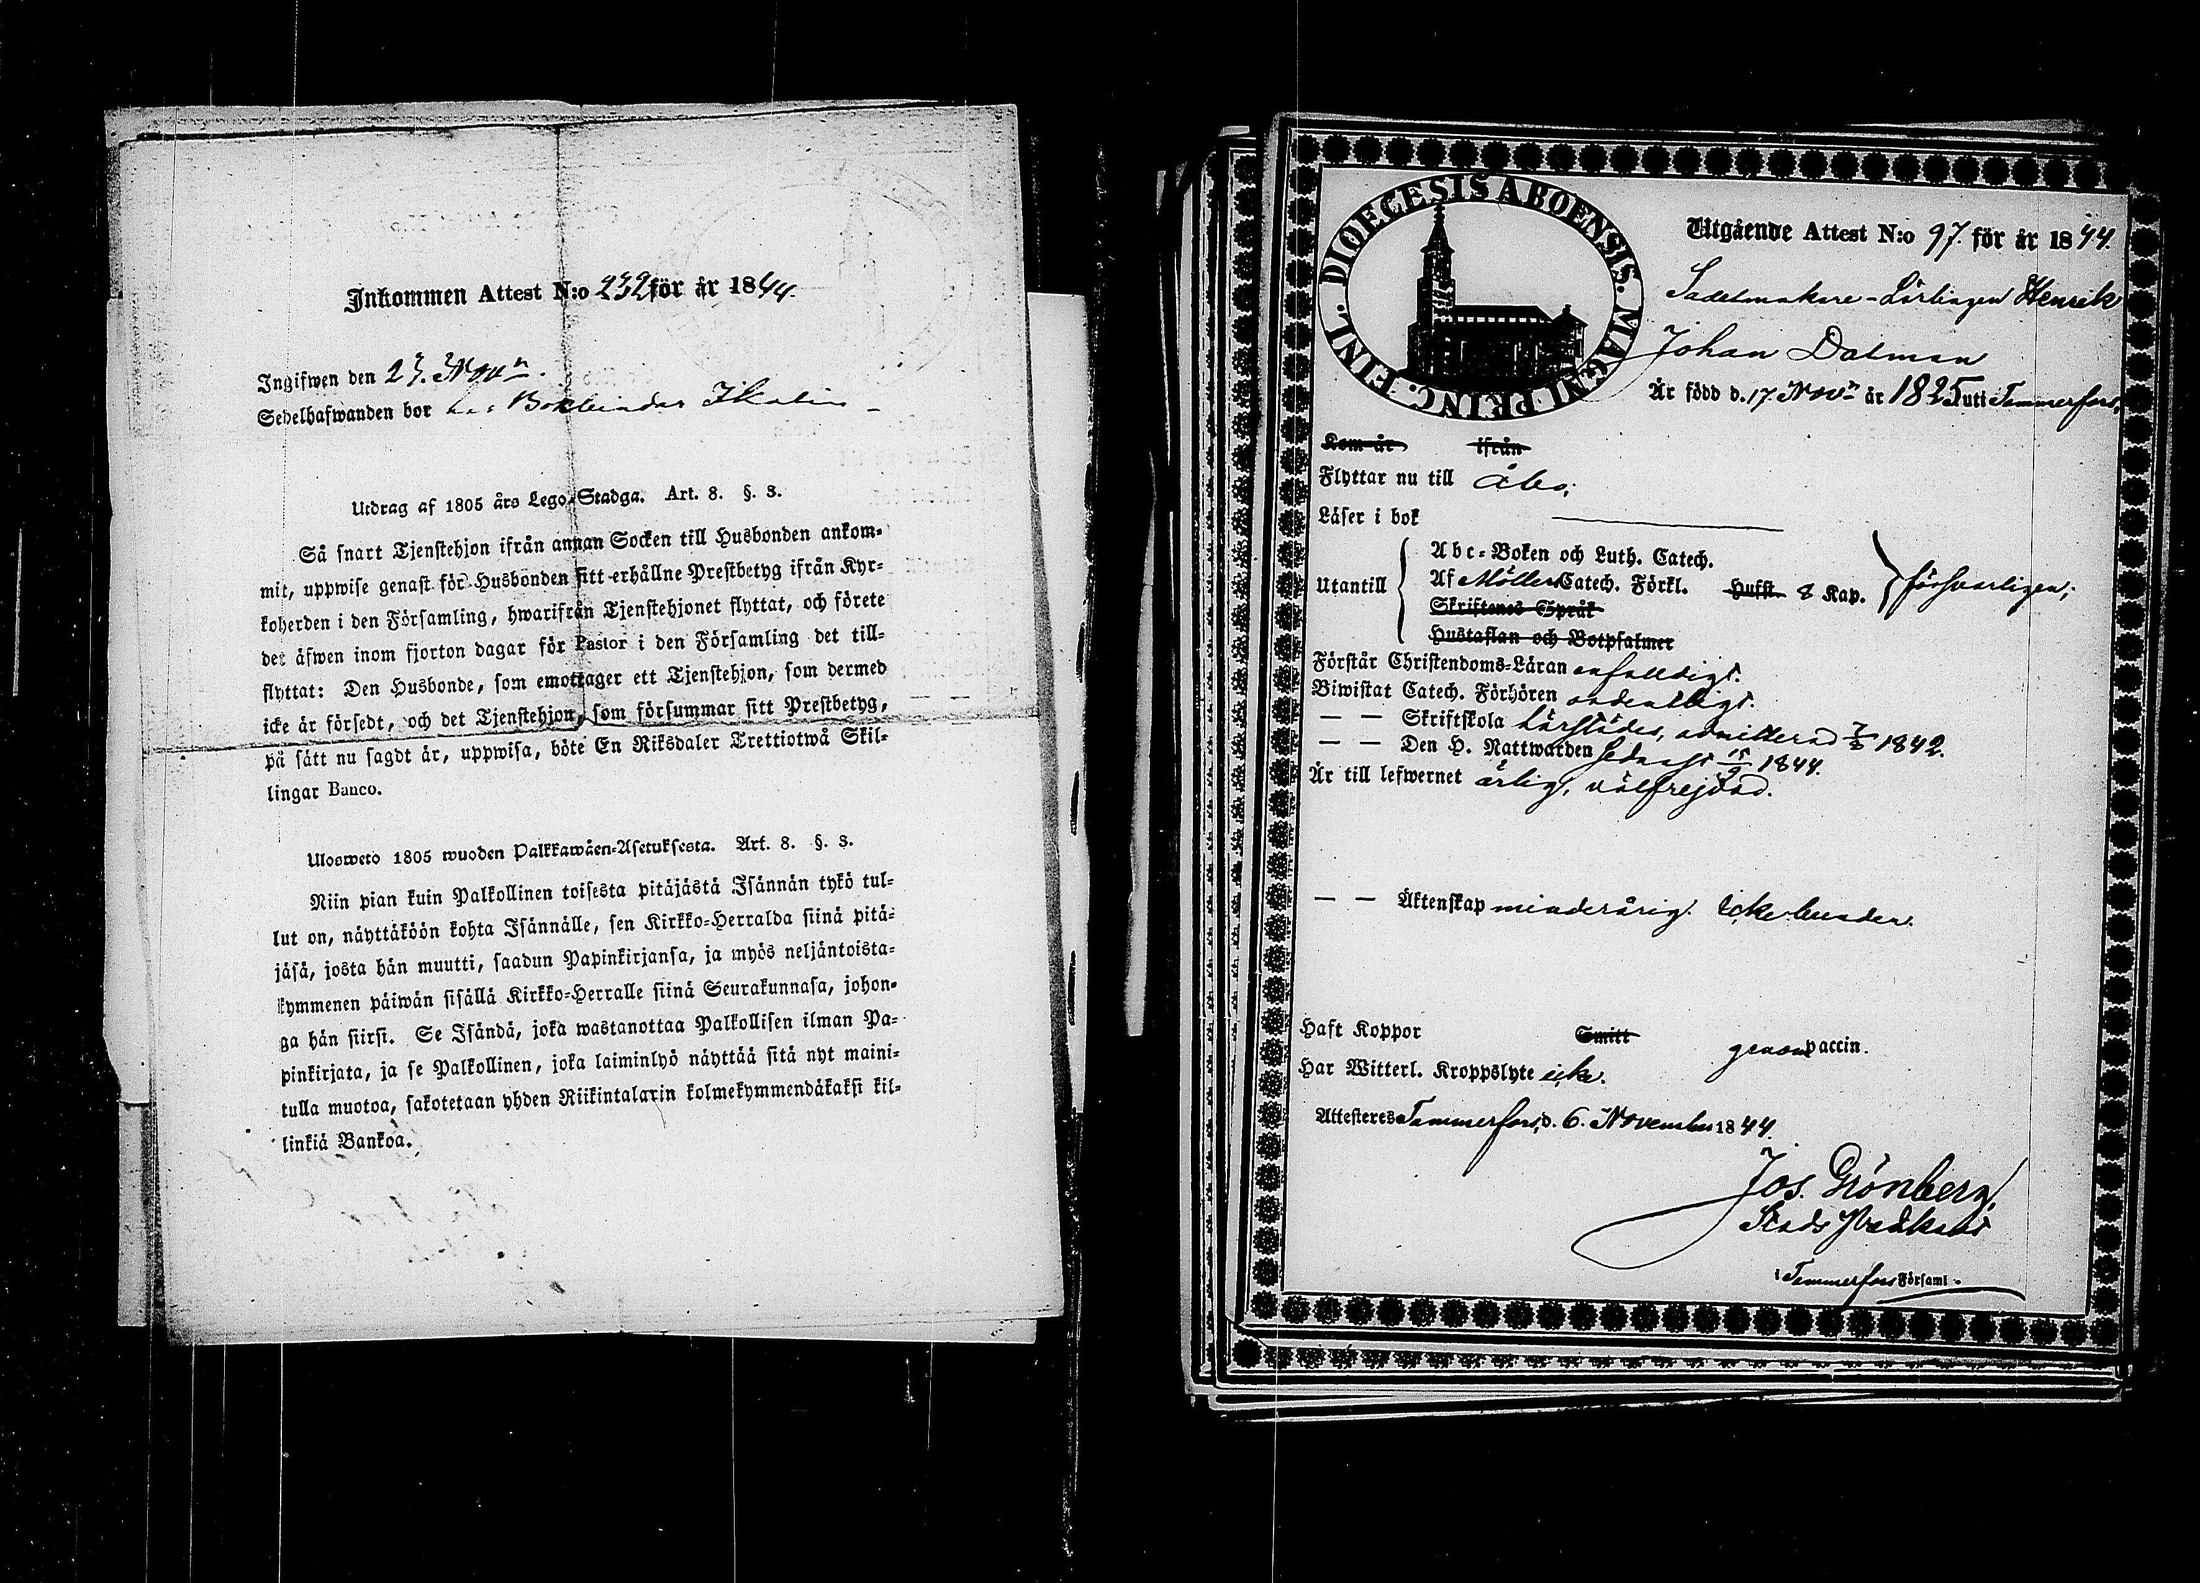 Inkommen Attest N:o 232 för år 1844.
Ingifwen den 23. Nov:r.
Sedelhafwanden bor hos Bokbindar
Utdrag af 1805 års Lego-Stadga. Art. 8. §. 3.
Så snart Tjenstehjon ifrån annan Socken till Husbonden ankom-
mit, uppwise genast för Husbonden sitt erhållne Prestbetyg ifrån Kyr-
koherden i den Församling, hwarifrån Tjenstehjonet flyttat, och förete
det äfwen inom fjorton dagar för Pastor i den Församling det till-
flyttat: Den Husbonde, som emottager ett Tjenstehjon, som dermed
icke är försedt, och det Tjenstehjon, som försummar sitt Prestbetyg,
på sätt nu sagdt är, uppwisa, böte En Riksdaler Trettiotwå Skil-
lingar Banco.
Ulosweto 1805 wuoden Palkkawäen-Asetuksesta. Art. 8. §. 3.
Niin pian kuin Palkollinen toisesta pitäjästä Isännän tykö tul-
lut on, näyttäköön kohta Isännälle, sen Kirkko-Herralda siinä pitä-
jäsä, josta hän muutti, saadun Papinkirjansa, ja myös neljäntoista-
kymmenen päiwän sisällä Kirkko-Herralle siinä Seurakunnasa, johon-
ga hän siirsi. Se Isändä, joka wastanottaa Palkollisen ilman Pa-
pinkirjata, ja se Palkollinen, joka laiminlyö näyttää sitä nyt maini-
tulla muotoa, sakotetaan yhden Riikintalarin kolmekymmendäkaksi kil-
linkiä Bankoa.
DIOECESIS ABOENSIS. MAGNI PRINC. FINL.
Utgående Attest N:o 97. för år 1844.
Sadelmakare-Lärlingen Henrik
Johan Dalman
Är född d. 17 Nov:r år 1825 uti Tammerfors,
Kom år ifrån
Flyttar nu till Åbo;
Läser i bok
Utantill
Abc-Boken och Luth. Catech.
Af Möllers Catech. Förkl. Hufst. 8 Kap.
försvarligen;
Skriftenes Språk
Hustaflan och Botpsalmer
Förstår Christendoms-Läran enfalldigt.
Biwistat Catech. Förhören ordentligt.
— — Skriftskola härstädes, admitterad 1842.
— — Den H. Nattwarden sednast 15/9 1844.
Är till lefwernet ärlig, välfrejdad.
— — Äktenskap minderårig. Icke bunden.
Haft Koppor Smitt genom vaccin.
Har Witterl. Kroppslyte icke.
Attesteres Tammerfors, d. 6. November 1844.
Jos. Grönberg,
Stads Predikant
i Tammerfors Församl.